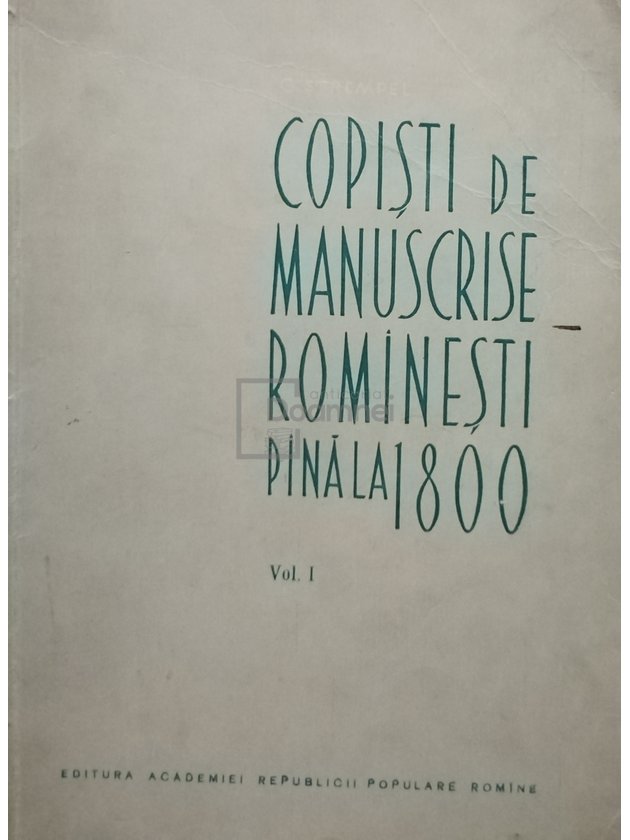 G. ŞTREMPEL
COPIŞTI DE
MANUSCRISE
ROMÎNEŞTI
PINĂ LA 1800
anticariat
Doamnei
Vol. I
EDITURA ACADEMIEI REPUBLICII POPULARE ROMÎNE